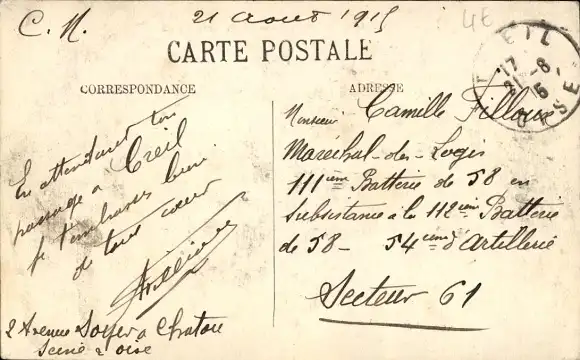 C. M. 21 Aout 1915
4€
CARTE POSTALE
CORRESPONDANCE
En attendant ton
passage à Creil
je t'embrasse bien
de tout cœur
2 Avenue Soyer à Chatou
Seine & Oise
ADRESSE
Monsieur Camille Filloux
Maréchal-des-Logis
111ième Batterie de 58 en
Subsistance à la 112ième Batterie
de 58 - 54ième d'Artillerie
Secteur 61
EIL
17
8
15
OISE